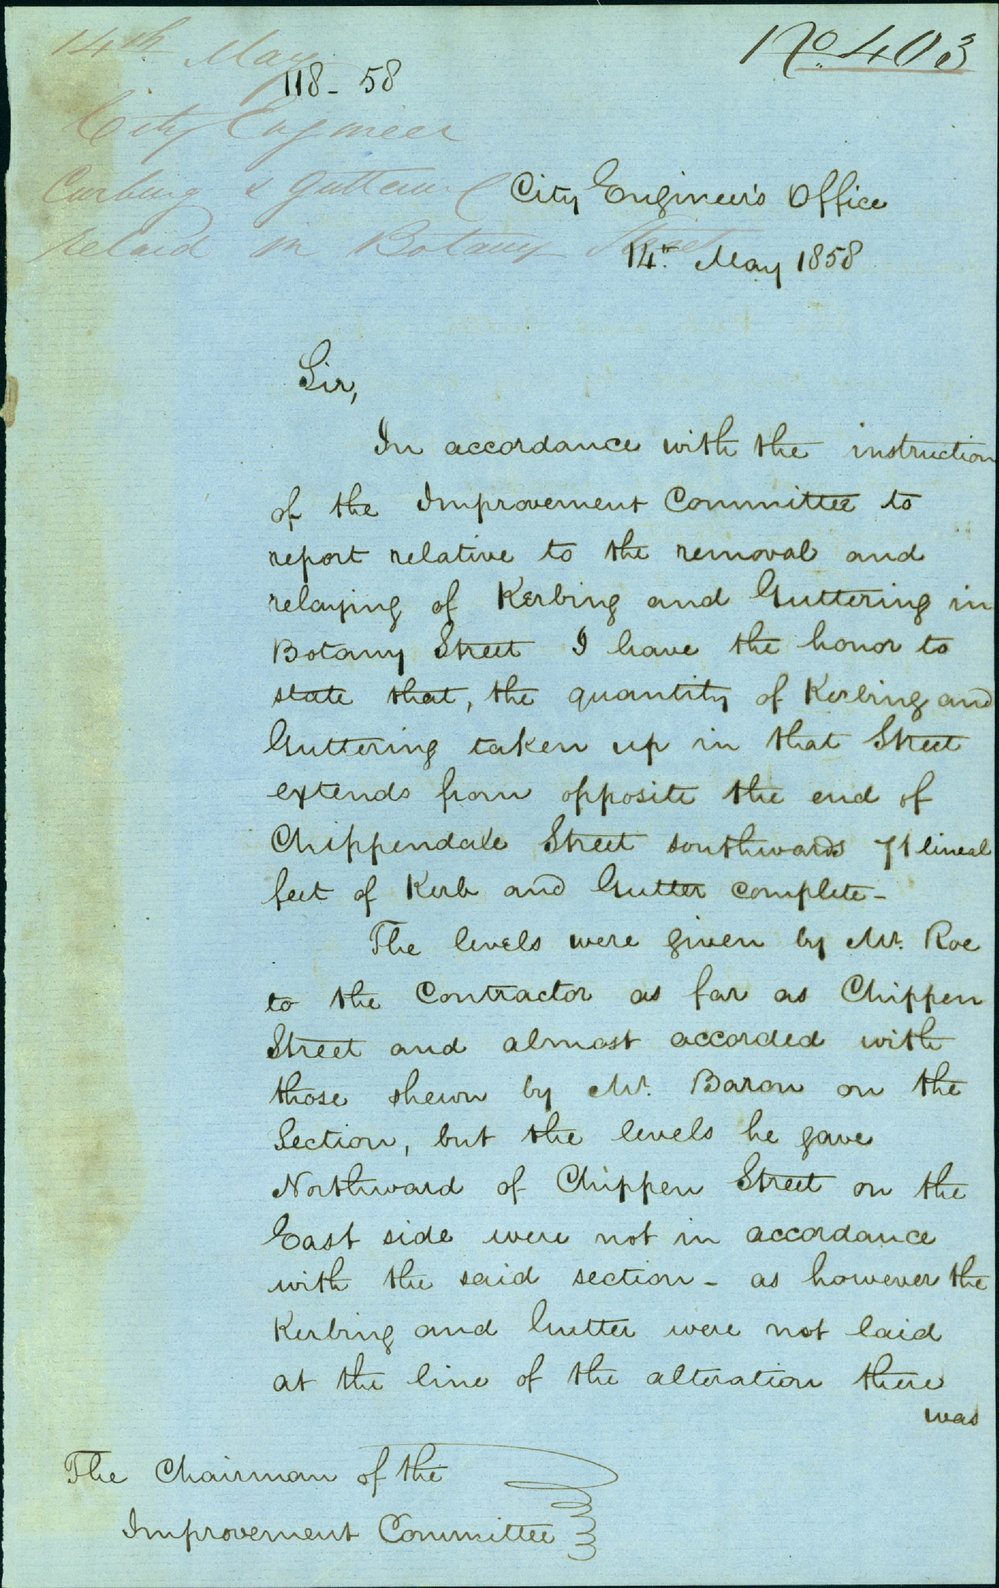 14th May
No. 403
118 - 58
City Engineer
Curbing & Guttering
relaid in Botany Street
City Engineer's Office
14th May 1858
Sir,
In accordance with the instruction
of the Improvement Committee to
report relative to the removal and
relaying of Kerbing and Guttering in
Botany Street I have the honor to
state that, the quantity of Kerbing and
Guttering taken up in that Street
extends from opposite the end of
Chippendale Street southwards 71 lineal
feet of Kerb and Gutter complete -
The levels were given by Mr. Roe
to the Contractor as far as Chippen
Street and almost accorded with
those shewn by Mr. Baron on the
Section, but the levels he gave
Northward of Chippen Street on the
East side were not in accordance
with the said section - as however the
Kerbing and Gutter were not laid
at the line of the alteration there
was
The Chairman of the
Improvement Committee